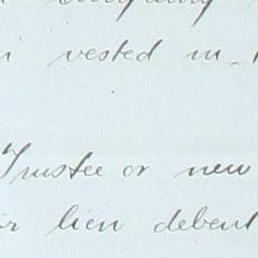 vested in
Trustee or new
or lien debent